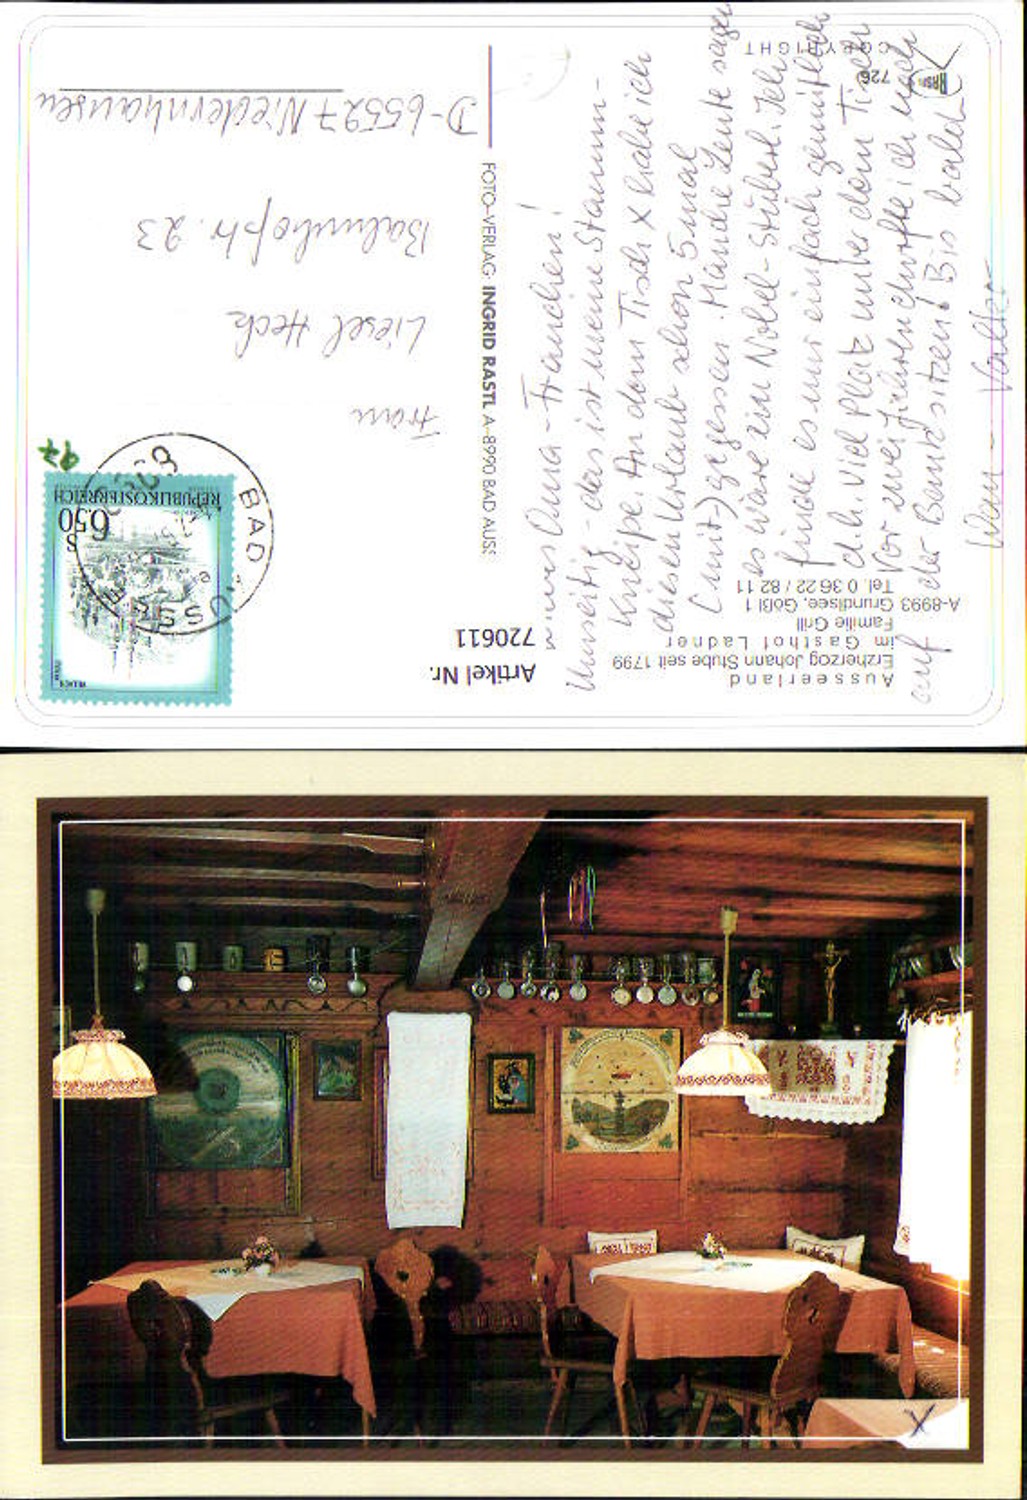 Ausseerland
Erzherzog Johann Stube seit 1799
im Gasthof Ladner
Familie Grill
A-8993 Grundlsee, Gößl 1
Tel. 0 36 22 / 82 11
Artikel Nr.
720611
Oma-Frauchen!
Umseitig - das ist meine Stamm-
Kneipe. An dem Tisch X habe ich
diesen Urlaub schon 5 mal
(mit) gegessen. Manche Leute sagen
es wäre ein Nobel-Stüberl. Ich
finde es nur einfach gemütlich
d.h. Viel Platz unter dem Tisch
Vor zwei Jahren durfte ich noch
auf der Bank sitzen! Bis bald
Walter
FOTO-VERLAG INGRID RASTL A-8990 BAD AUSS
COPYRIGHT
726
REPUBLIK ÖSTERREICH
S 6.50
BAD AUSSEE
97
Frau
Liesel Heck
Bahnhofstr. 23
D-65527 Niedernhausen
X